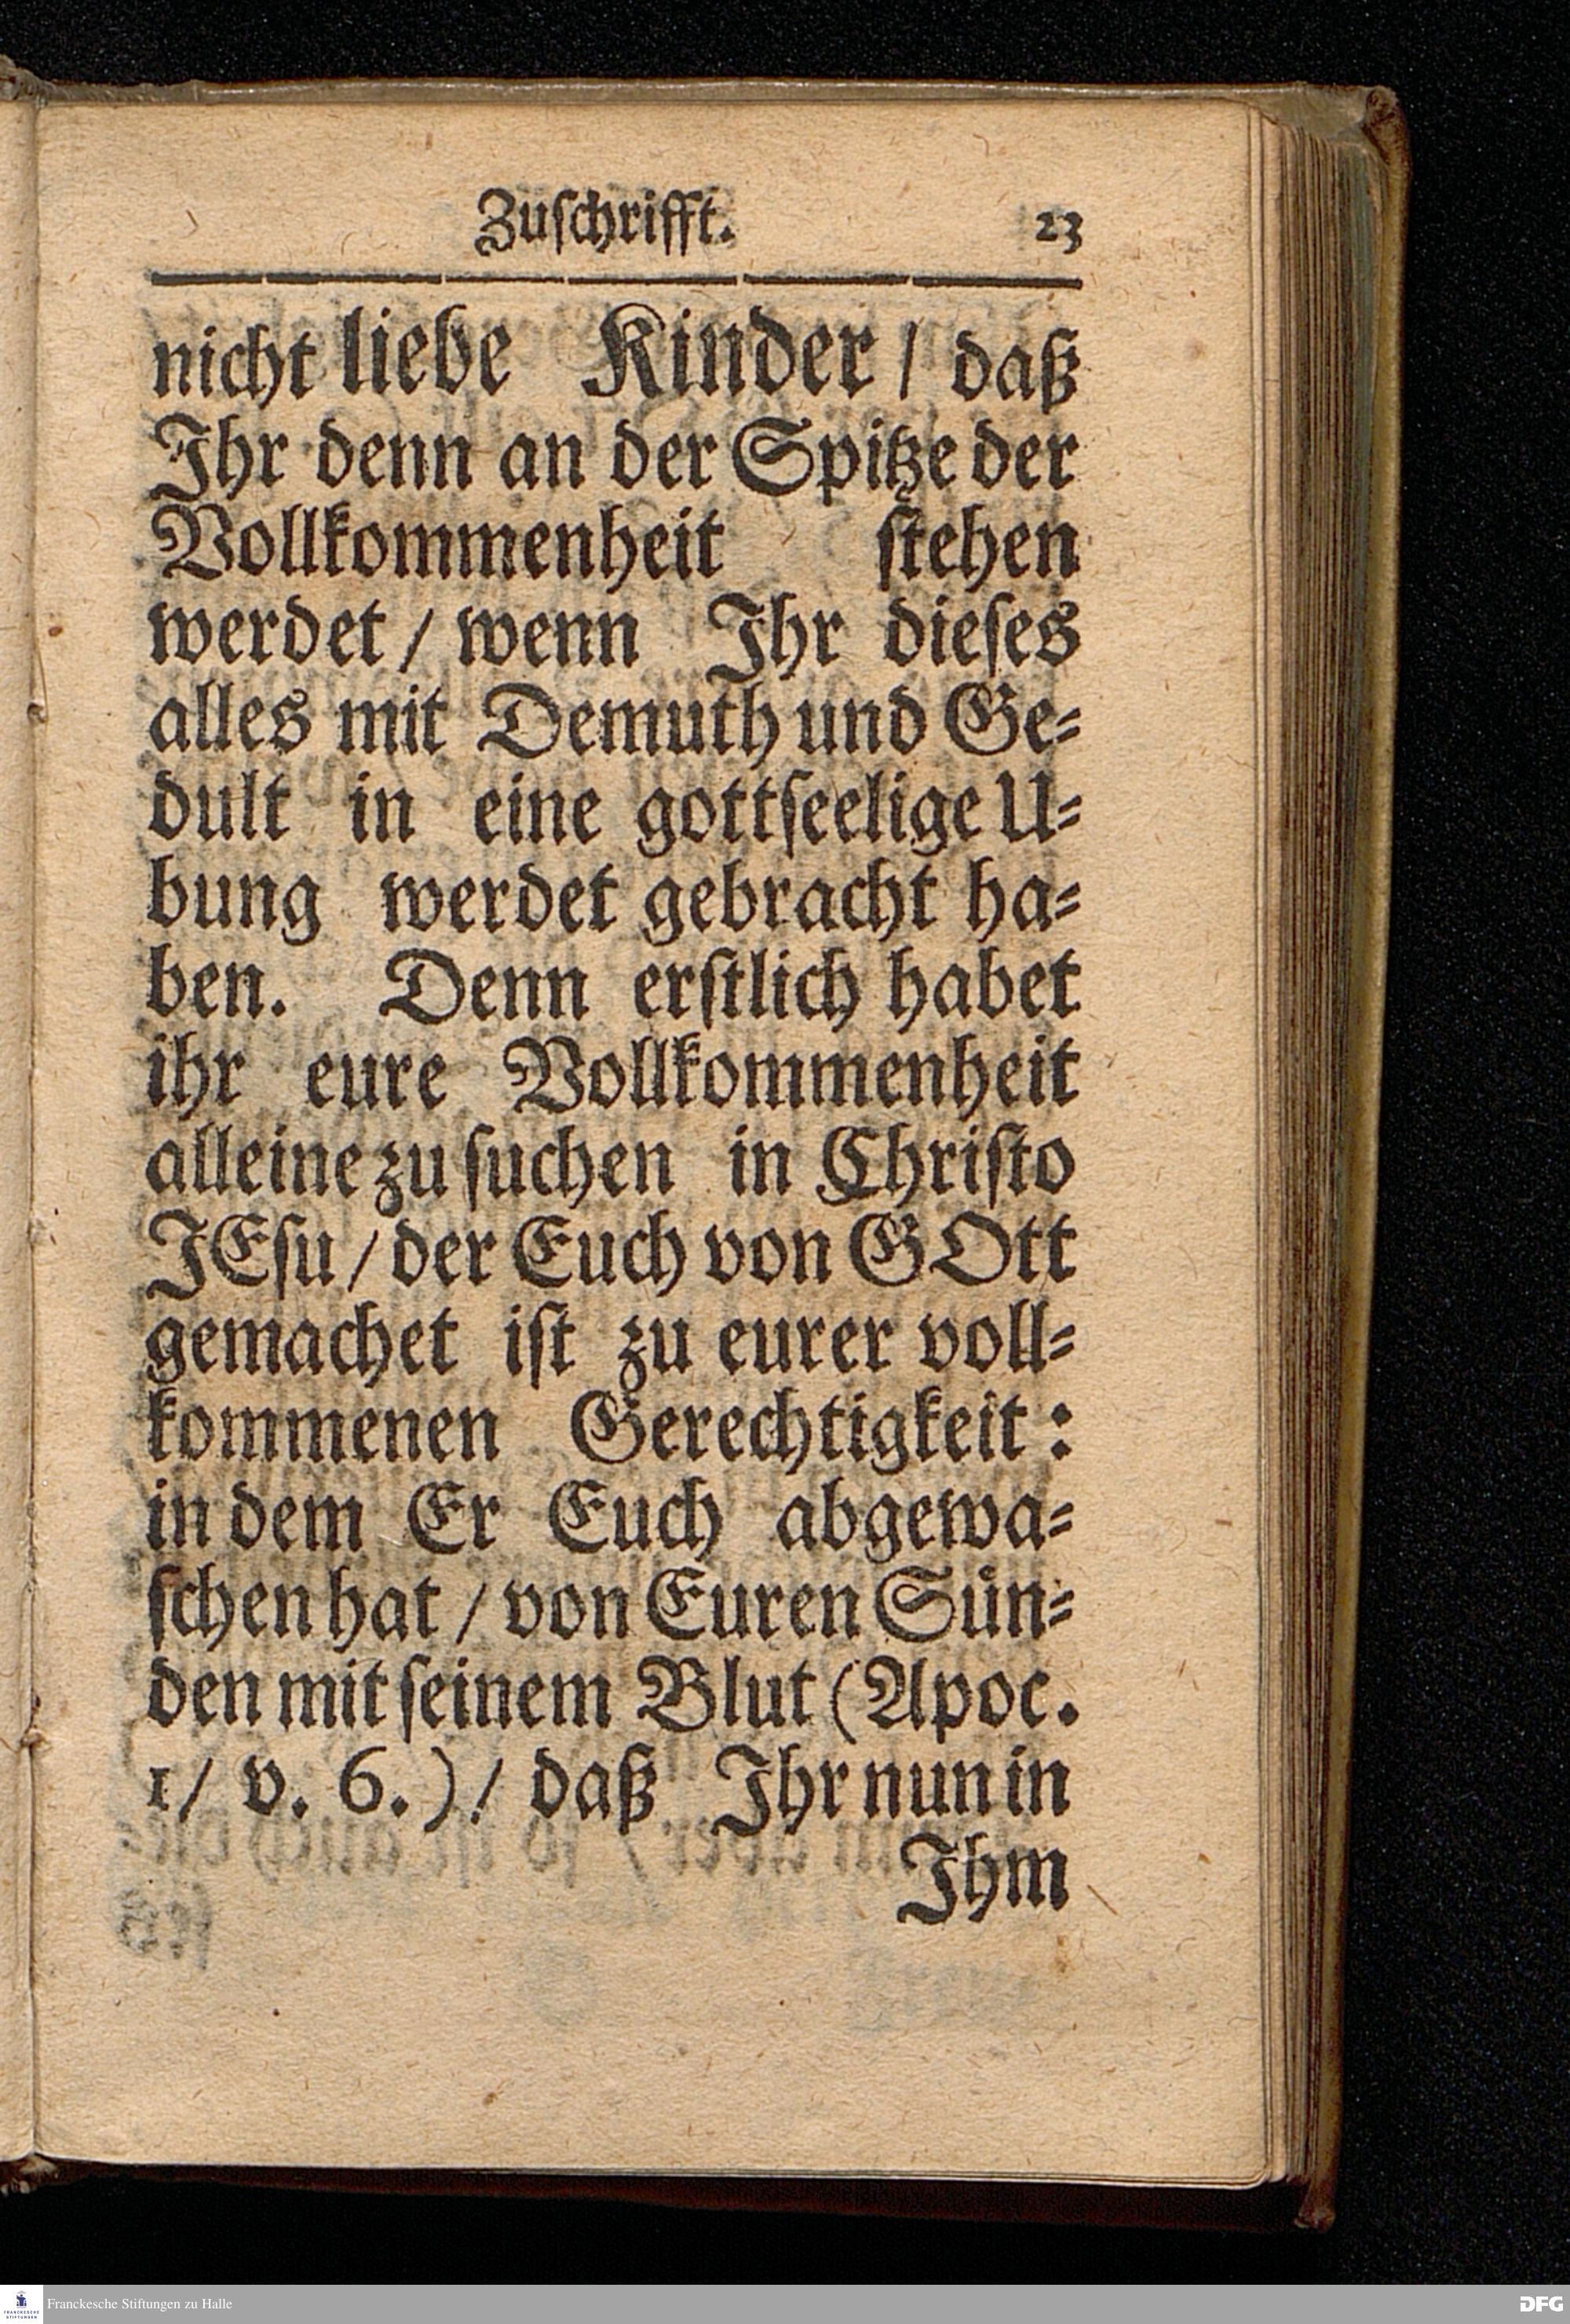 Zuſchrifft. 23
nicht liebe Kinder / daß
Ihr denn an der Spitze der
Vollkommenheit ſtehen
werdet / wenn Ihr dieſes
alles mit Demuth und Ge⸗
dult in eine gottſeelige U⸗
bung werdet gebracht ha⸗
ben. Denn erſtlich habet
ihr eure Vollkommenheit
alleine zu ſuchen in Chriſto
JEſu / der Euch von GOtt
gemachet iſt zu eurer voll⸗
kommenen Gerechtigkeit:
in dem Er Euch abgewa⸗
ſchen hat / von Euren Sün⸗
den mit ſeinem Blut (Apoc.
1/ v. 6.) / daß Ihr nun in
Ihm
FRANCKESCHE STIFTUNGEN
Franckesche Stiftungen zu Halle
DFG